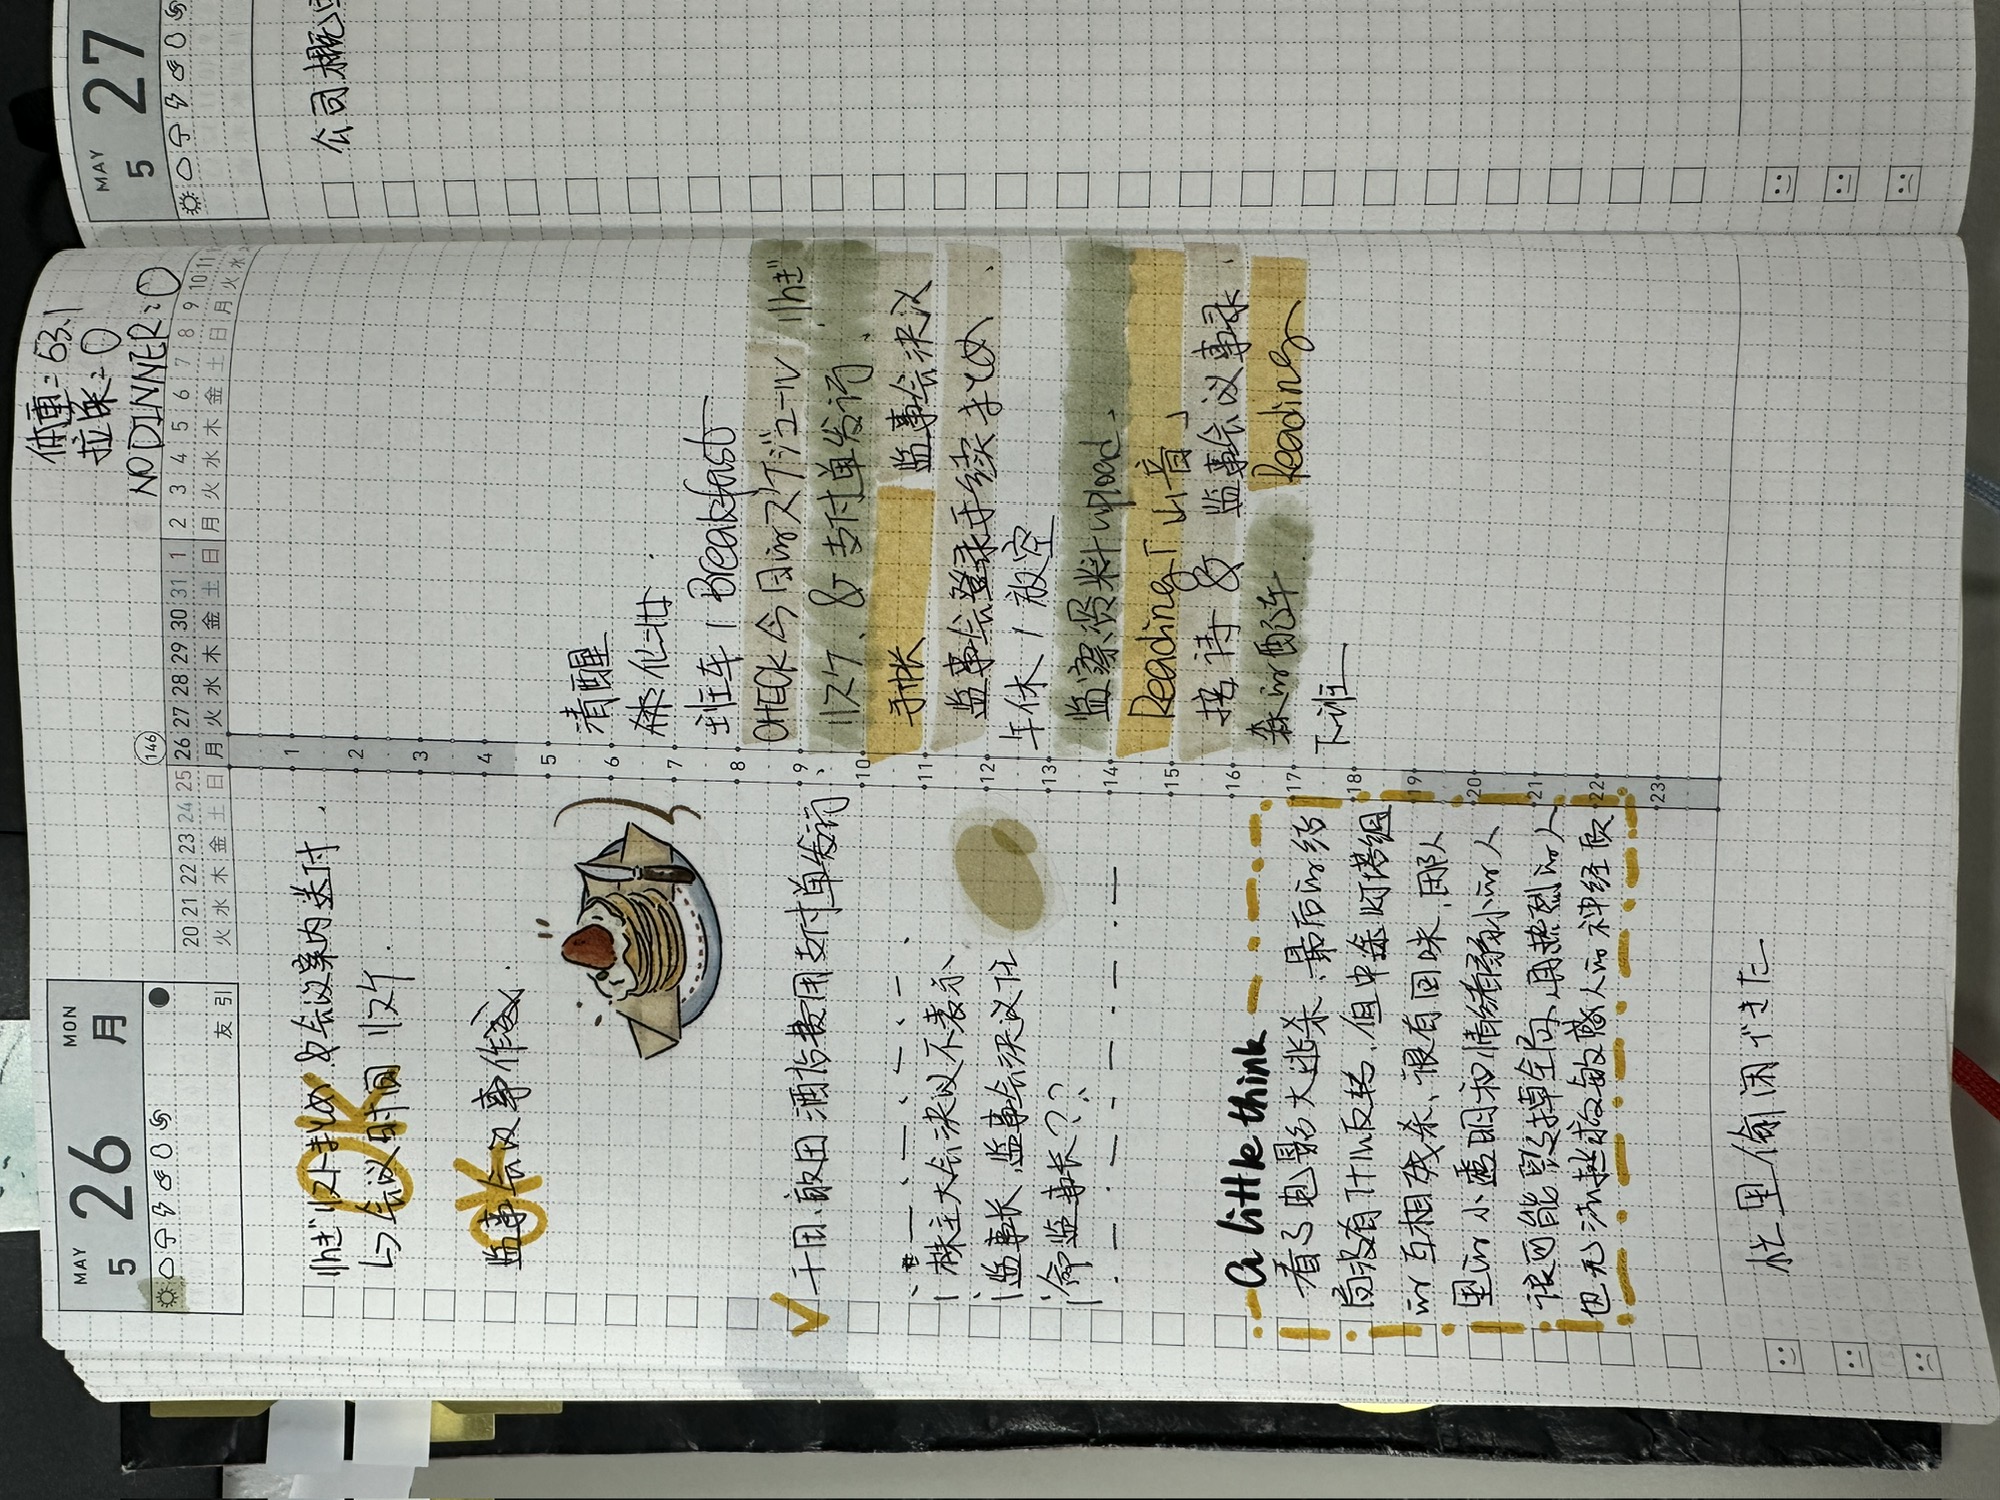 MAY
5
26
MON
月
友引
体重=63.1
拉屎=0
NO DINNER:○
146
20 21 22 23 24 25 26 27 28 29 30 31 1 2 3 4 5 6 7 8 9 10 11
火 水 木 金 土 日 月 火 水 木 金 土 日 月 火 水 木 金 土 日 月 火 水
リスト まとめ & 会议案内送付、
会议时间 リスケ
OK
监事会议事作成、
OK
千田、飯田 酒店费用支付单发行、
株主大会决议不表示、
监事长、监事会决议任
命监事长??
a little think
看了电影大逃杀、最后的结
局没有什么反转、但中途灯塔组
的互相残杀、很有回味、那人
里的小透明和情绪矛的人
很可能毁掉全局、再热烈的人
也无法拯救敏感人的神经质
忙里偷闲できた
1
2
3
4
5
6
7
8
9
10
11
12
13
14
15
16
17
18
19
20
21
22
23
清醒
化壮
班车 / Breakfast
CHECK 今月的スケジュール
リスケ、& 支付单发行、
手帐
监事会决议
监事会登录手续まとめ、
年休 / 放空
监察资料upload、
Reading「山音」
接待 & 监事会议事录、
森的配车
Reading
下班
MAY
5
27
公司概